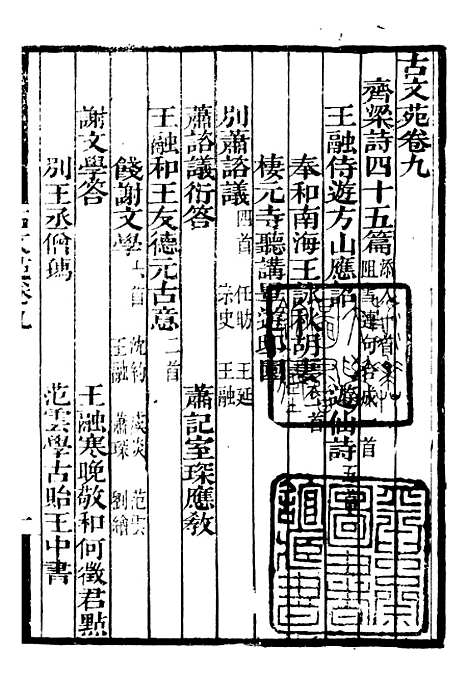 古文苑卷九
齊梁詩四十五篇
王融侍遊方山應詔 遊仙詩五首
奉和南海王詠秋胡妻
棲元寺聽講畢遊邸園
別蕭諮議四首 任昉 王延 宗史 王融
蕭諮議衍答 蕭記室琛應教
王融和王友德元古意二首
餞謝文學六首 沈約 范雲 王融 蕭琛 劉繪
謝文學答 王融寒晚敬和何徵君點
別王丞僧孺 范雲學古貽王中書